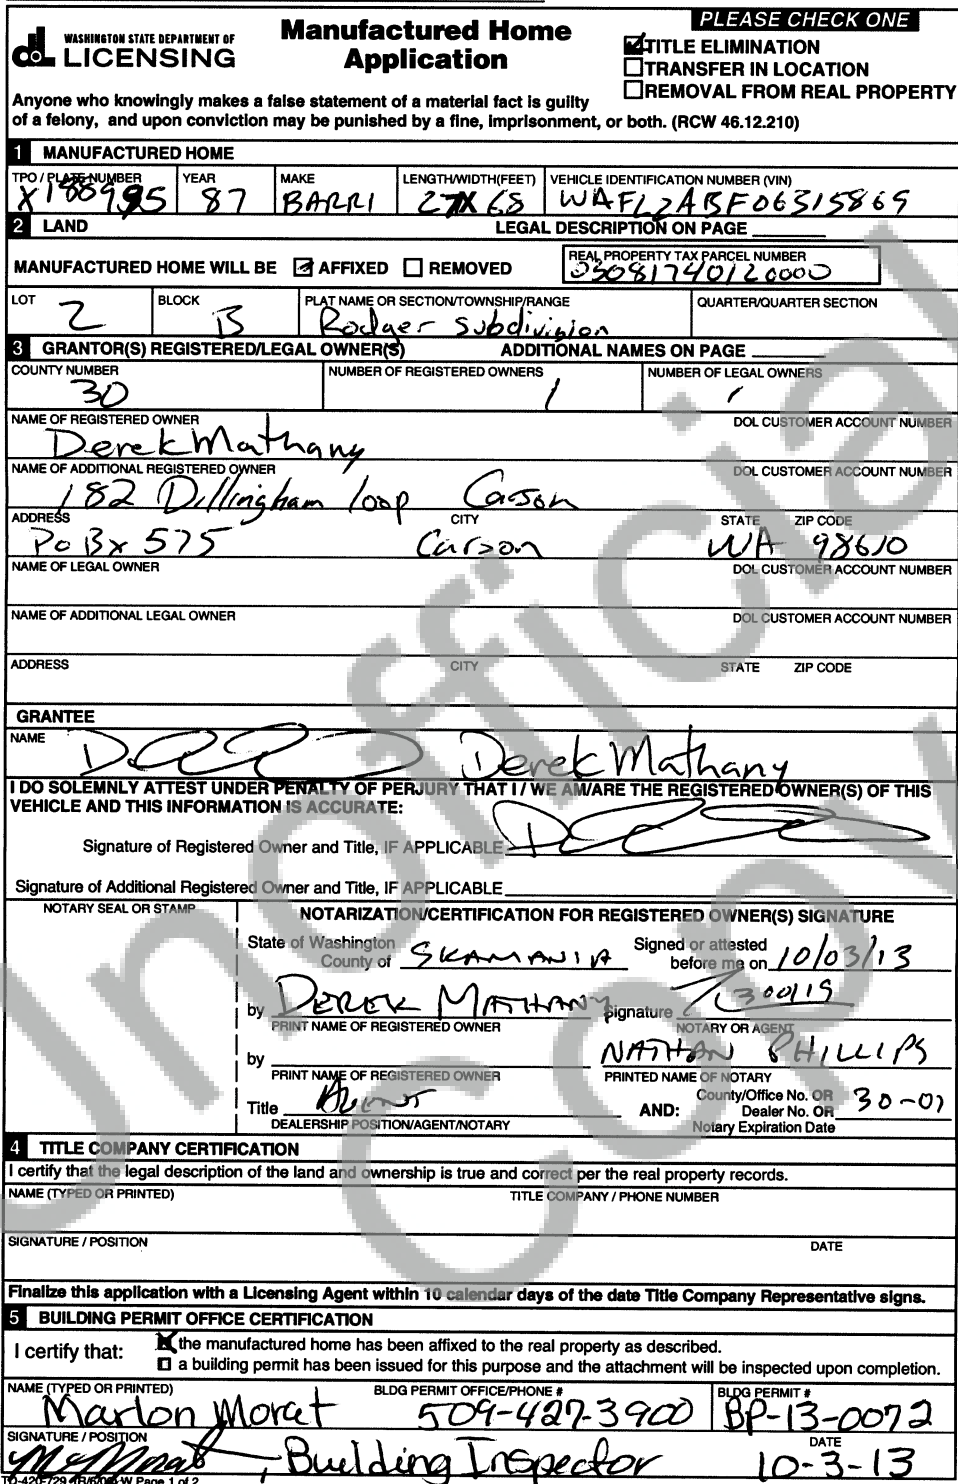 WASHINGTON STATE DEPARTMENT OF
LICENSING
Manufactured Home
Application
PLEASE CHECK ONE
TITLE ELIMINATION
TRANSFER IN LOCATION
REMOVAL FROM REAL PROPERTY
Anyone who knowingly makes a false statement of a material fact is guilty
of a felony, and upon conviction may be punished by a fine, imprisonment, or both. (RCW 46.12.210)
1 MANUFACTURED HOME
TPO / PLATE NUMBER YEAR MAKE LENGTH/WIDTH(FEET) VEHICLE IDENTIFICATION NUMBER (VIN)
87 BARRI 27X68 WAFL2ABF06315869
2 LAND LEGAL DESCRIPTION ON PAGE
MANUFACTURED HOME WILL BE AFFIXED REMOVED
REAL PROPERTY TAX PARCEL NUMBER
03081740120000
LOT BLOCK PLAT NAME OR SECTION/TOWNSHIP/RANGE QUARTER/QUARTER SECTION
2 B Rodger subdivision
3 GRANTOR(S) REGISTERED/LEGAL OWNER(S) ADDITIONAL NAMES ON PAGE
COUNTY NUMBER NUMBER OF REGISTERED OWNERS NUMBER OF LEGAL OWNERS
30 1 1
NAME OF REGISTERED OWNER DOL CUSTOMER ACCOUNT NUMBER
Derek Mathany
NAME OF ADDITIONAL REGISTERED OWNER DOL CUSTOMER ACCOUNT NUMBER
182 Dillingham loop Carson
ADDRESS CITY STATE ZIP CODE
Po Bx 575 Carson WA 98610
NAME OF LEGAL OWNER DOL CUSTOMER ACCOUNT NUMBER
NAME OF ADDITIONAL LEGAL OWNER DOL CUSTOMER ACCOUNT NUMBER
ADDRESS CITY STATE ZIP CODE
GRANTEE
NAME
Derek Mathany
I DO SOLEMNLY ATTEST UNDER PENALTY OF PERJURY THAT I / WE AM/ARE THE REGISTERED OWNER(S) OF THIS
VEHICLE AND THIS INFORMATION IS ACCURATE:
Signature of Registered Owner and Title, IF APPLICABLE
Signature of Additional Registered Owner and Title, IF APPLICABLE
NOTARY SEAL OR STAMP
NOTARIZATION/CERTIFICATION FOR REGISTERED OWNER(S) SIGNATURE
State of Washington
County of SKAMANIA
Signed or attested
before me on 10/03/13
by DEREK MATHANY Signature 300119
PRINT NAME OF REGISTERED OWNER NOTARY OR AGENT
by NATHAN PHILLIPS
PRINT NAME OF REGISTERED OWNER PRINTED NAME OF NOTARY
Title Agent AND: County/Office No. OR
Dealer No. OR 30-01
DEALERSHIP POSITION/AGENT/NOTARY Notary Expiration Date
4 TITLE COMPANY CERTIFICATION
I certify that the legal description of the land and ownership is true and correct per the real property records.
NAME (TYPED OR PRINTED) TITLE COMPANY / PHONE NUMBER
SIGNATURE / POSITION DATE
Finalize this application with a Licensing Agent within 10 calendar days of the date Title Company Representative signs.
5 BUILDING PERMIT OFFICE CERTIFICATION
I certify that: the manufactured home has been affixed to the real property as described.
a building permit has been issued for this purpose and the attachment will be inspected upon completion.
NAME (TYPED OR PRINTED) BLDG PERMIT OFFICE/PHONE # BLDG PERMIT #
Marlon Morat 509-427-3900 BP-13-0072
SIGNATURE / POSITION DATE
, Building Inspector 10-3-13
Unofficial
Copy